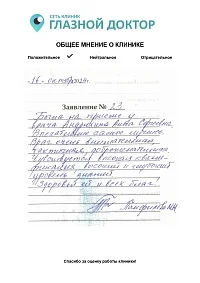 СЕТЬ КЛИНИК
ГЛАЗНОЙ ДОКТОР
ОБЩЕЕ МНЕНИЕ О КЛИНИКЕ
Положительное ✓ Нейтральное Отрицательное
16 октября
Заявление № 23
Была на приеме у
врача
Врач очень внимательная,
тактичная, доброжелательная.
Чувствуется высокая квали-
фикация, высокий и глубокий
уровень знаний.
Здоровья ей и всех благ!
Спасибо за оценку работы клиники!